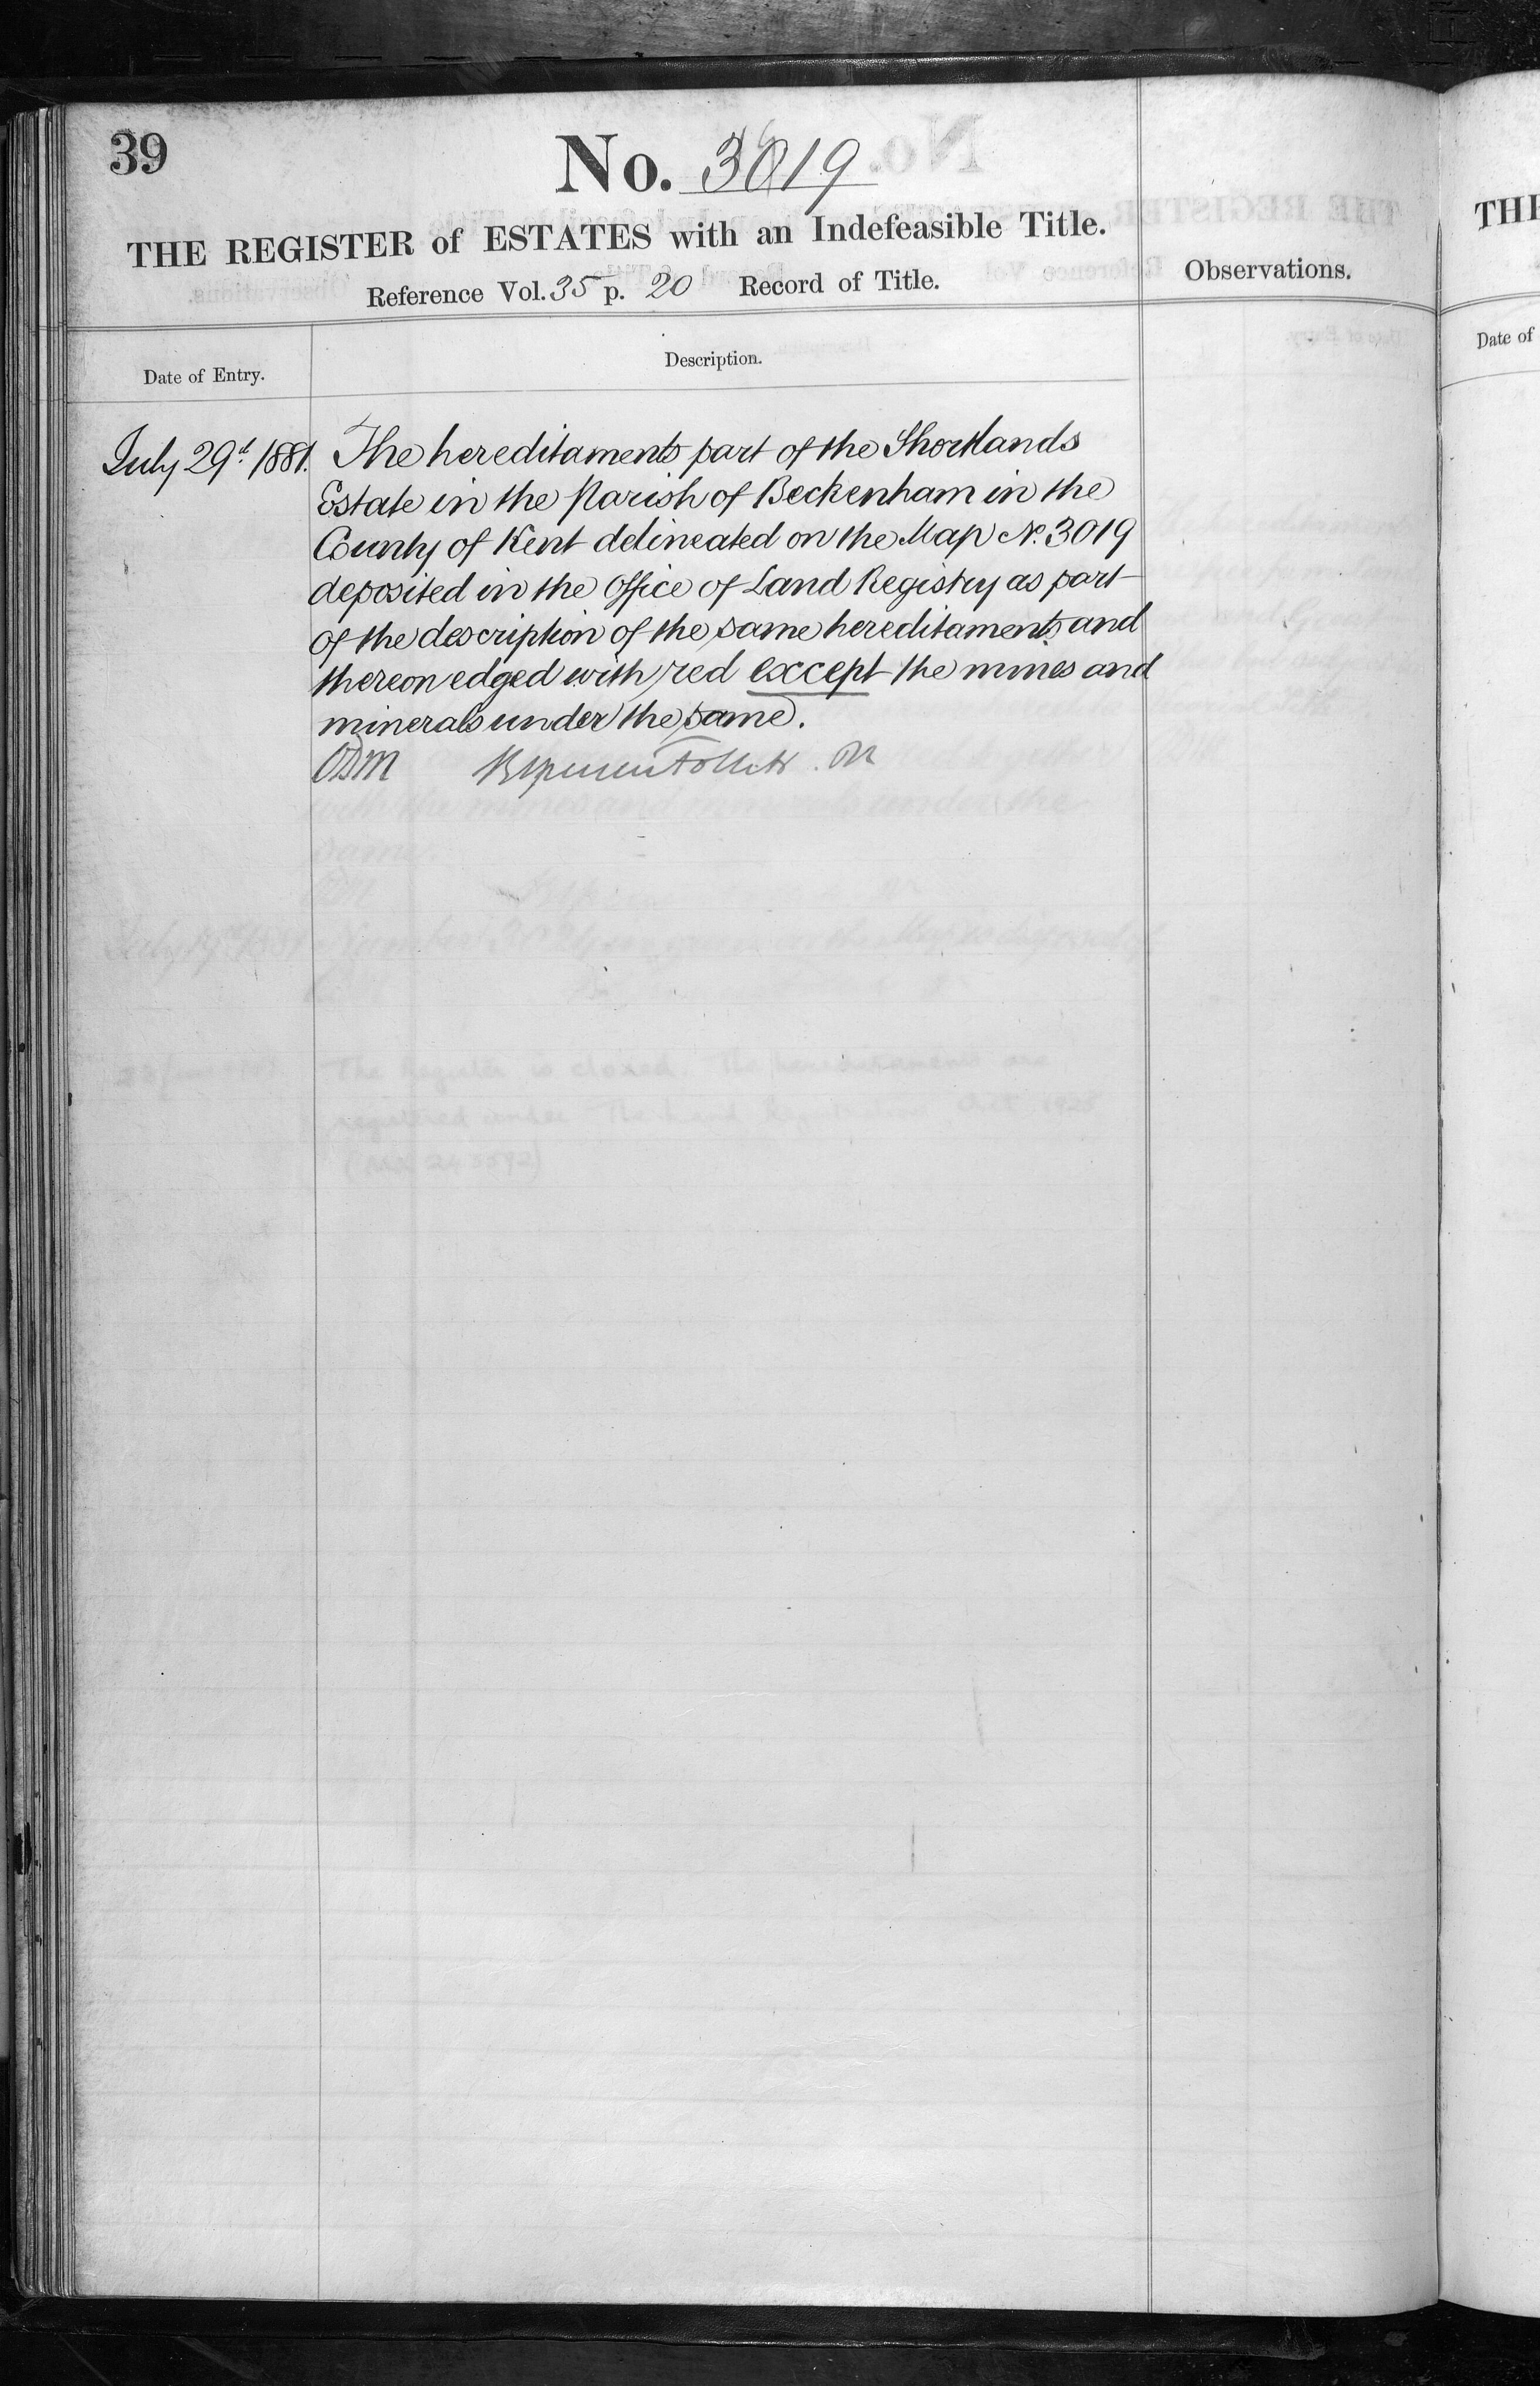 39
No. 3019
THE REGISTER of ESTATES with an Indefeasible Title.
Reference Vol. 35 p. 20 Record of Title.
Observations.
Date of Entry.
Description.
July 29th 1881. The hereditaments part of the Shortlands
Estate in the Parish of Beckenham in the
County of Kent delineated on the Map No. 3019
deposited in the Office of Land Registry as part
of the description of the same hereditaments and
thereon edged with red except the mines and
minerals under the same.
THE
Date of